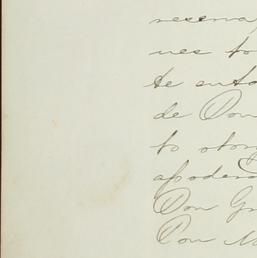 reserva
nes to
te auto
de Don
to otor
apodera
Don Gr
Don M